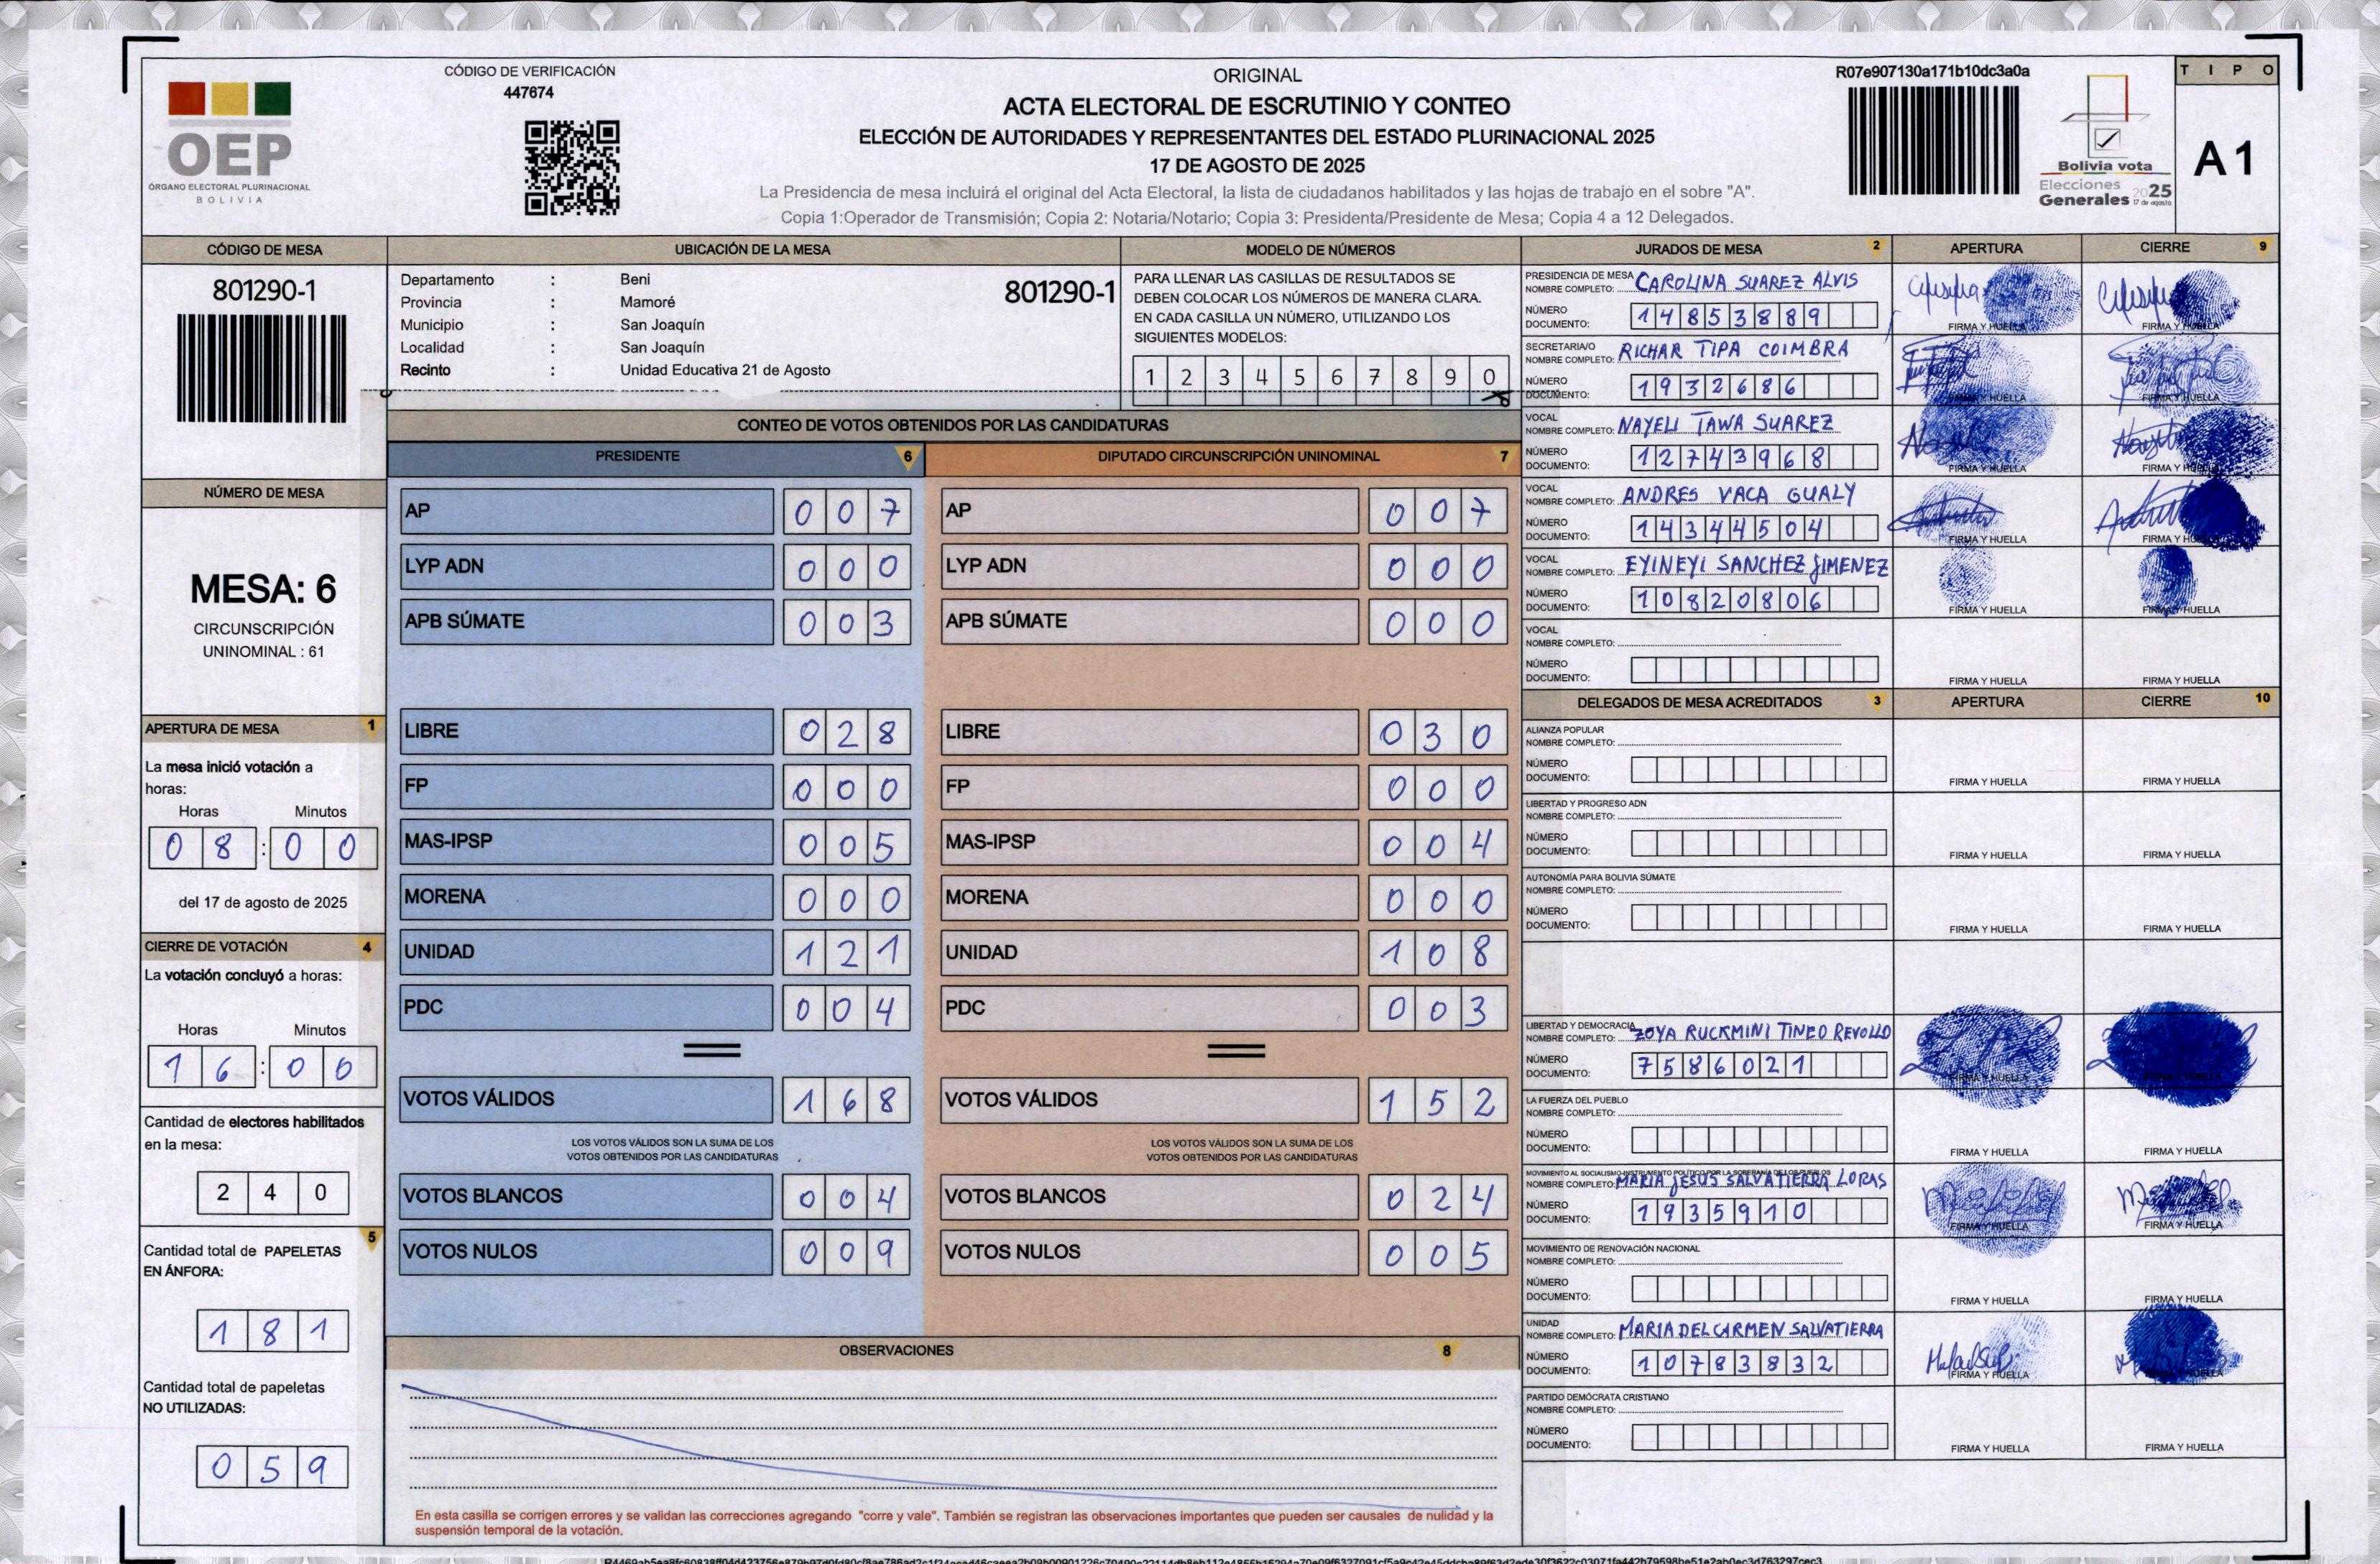 CÓDIGO DE VERIFICACIÓN
447674
OEP
ÓRGANO ELECTORAL PLURINACIONAL
BOLIVIA
ORIGINAL
ACTA ELECTORAL DE ESCRUTINIO Y CONTEO
ELECCIÓN DE AUTORIDADES Y REPRESENTANTES DEL ESTADO PLURINACIONAL 2025
17 DE AGOSTO DE 2025
La Presidencia de mesa incluirá el original del Acta Electoral, la lista de ciudadanos habilitados y las hojas de trabajo en el sobre "A".
Copia 1:Operador de Transmisión; Copia 2: Notaria/Notario; Copia 3: Presidenta/Presidente de Mesa; Copia 4 a 12 Delegados.
R07e907130a171b10dc3a0a
Bolivia vota
Elecciones
Generales 2025
17 de agosto
TIPO
A 1
CÓDIGO DE MESA
801290-1
UBICACIÓN DE LA MESA
Departamento : Beni
801290-1
Provincia : Mamoré
Municipio : San Joaquín
Localidad : San Joaquín
Recinto : Unidad Educativa 21 de Agosto
MODELO DE NÚMEROS
PARA LLENAR LAS CASILLAS DE RESULTADOS SE
DEBEN COLOCAR LOS NÚMEROS DE MANERA CLARA.
EN CADA CASILLA UN NÚMERO, UTILIZANDO LOS
SIGUIENTES MODELOS:
1 2 3 4 5 6 7 8 9 0
NÚMERO DE MESA
MESA: 6
CIRCUNSCRIPCIÓN
UNINOMINAL : 61
APERTURA DE MESA 1
La mesa inició votación a
horas:
Horas Minutos
0 8 : 0 0
del 17 de agosto de 2025
CIERRE DE VOTACIÓN 4
La votación concluyó a horas:
Horas Minutos
1 6 : 0 0
Cantidad de electores habilitados
en la mesa:
2 4 0
5
Cantidad total de PAPELETAS
EN ÁNFORA:
1 8 1
Cantidad total de papeletas
NO UTILIZADAS:
0 5 9
CONTEO DE VOTOS OBTENIDOS POR LAS CANDIDATURAS
PRESIDENTE 6
AP 0 0 7
LYP ADN 0 0 0
APB SÚMATE 0 0 3
LIBRE 0 2 8
FP 0 0 0
MAS-IPSP 0 0 5
MORENA 0 0 0
UNIDAD 1 2 1
PDC 0 0 4
VOTOS VÁLIDOS 1 6 8
LOS VOTOS VÁLIDOS SON LA SUMA DE LOS
VOTOS OBTENIDOS POR LAS CANDIDATURAS
VOTOS BLANCOS 0 0 4
VOTOS NULOS 0 0 9
DIPUTADO CIRCUNSCRIPCIÓN UNINOMINAL 7
AP 0 0 7
LYP ADN 0 0 0
APB SÚMATE 0 0 0
LIBRE 0 3 0
FP 0 0 0
MAS-IPSP 0 0 4
MORENA 0 0 0
UNIDAD 1 0 8
PDC 0 0 3
VOTOS VÁLIDOS 1 5 2
LOS VOTOS VÁLIDOS SON LA SUMA DE LOS
VOTOS OBTENIDOS POR LAS CANDIDATURAS
VOTOS BLANCOS 0 2 4
VOTOS NULOS 0 0 5
OBSERVACIONES 8
En esta casilla se corrigen errores y se validan las correcciones agregando "corre y vale". También se registran las observaciones importantes que pueden ser causales de nulidad y la
suspensión temporal de la votación.
JURADOS DE MESA 2 APERTURA CIERRE 9
PRESIDENCIA DE MESA
NOMBRE COMPLETO: CAROLINA SUAREZ ALVIS
NÚMERO
DOCUMENTO: 14853889
FIRMA Y HUELLA FIRMA Y HUELLA
SECRETARIA/O
NOMBRE COMPLETO: RICHAR TIPA COIMBRA
NÚMERO
DOCUMENTO: 1932686
FIRMA Y HUELLA FIRMA Y HUELLA
VOCAL
NOMBRE COMPLETO: NAYELI TAWA SUAREZ
NÚMERO
DOCUMENTO: 12743968
FIRMA Y HUELLA FIRMA Y HUELLA
VOCAL
NOMBRE COMPLETO: ANDRES VACA GUALY
NÚMERO
DOCUMENTO: 14344504
FIRMA Y HUELLA FIRMA Y HUELLA
VOCAL
NOMBRE COMPLETO: EYINEYI SANCHEZ JIMENEZ
NÚMERO
DOCUMENTO: 10820806
FIRMA Y HUELLA FIRMA Y HUELLA
VOCAL
NOMBRE COMPLETO:
NÚMERO
DOCUMENTO:
FIRMA Y HUELLA FIRMA Y HUELLA
DELEGADOS DE MESA ACREDITADOS 3 APERTURA CIERRE 10
ALIANZA POPULAR
NOMBRE COMPLETO:
NÚMERO
DOCUMENTO:
FIRMA Y HUELLA FIRMA Y HUELLA
LIBERTAD Y PROGRESO ADN
NOMBRE COMPLETO:
NÚMERO
DOCUMENTO:
FIRMA Y HUELLA FIRMA Y HUELLA
AUTONOMÍA PARA BOLIVIA SÚMATE
NOMBRE COMPLETO:
NÚMERO
DOCUMENTO:
FIRMA Y HUELLA FIRMA Y HUELLA
LIBERTAD Y DEMOCRACIA
NOMBRE COMPLETO: ZOYA RUCKMINI TINEO REVOLLO
NÚMERO
DOCUMENTO: 7586021
FIRMA Y HUELLA
LA FUERZA DEL PUEBLO
NOMBRE COMPLETO:
NÚMERO
DOCUMENTO:
FIRMA Y HUELLA FIRMA Y HUELLA
MOVIMIENTO AL SOCIALISMO-INSTRUMENTO POLÍTICO POR LA SOBERANÍA DE LOS PUEBLOS
NOMBRE COMPLETO: MARIA JESUS SALVATIERRA LORAS
NÚMERO
DOCUMENTO: 1935910
FIRMA Y HUELLA FIRMA Y HUELLA
MOVIMIENTO DE RENOVACIÓN NACIONAL
NOMBRE COMPLETO:
NÚMERO
DOCUMENTO:
FIRMA Y HUELLA FIRMA Y HUELLA
UNIDAD
NOMBRE COMPLETO: MARIA DEL CARMEN SALVATIERRA
NÚMERO
DOCUMENTO: 10783832
FIRMA Y HUELLA FIRMA Y HUELLA
PARTIDO DEMÓCRATA CRISTIANO
NOMBRE COMPLETO:
NÚMERO
DOCUMENTO:
FIRMA Y HUELLA FIRMA Y HUELLA